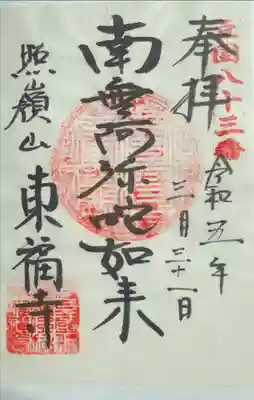 奉拝
八十三番
令和五年
三月三十一日
南無阿弥陀如来
照嶺山
東福寺